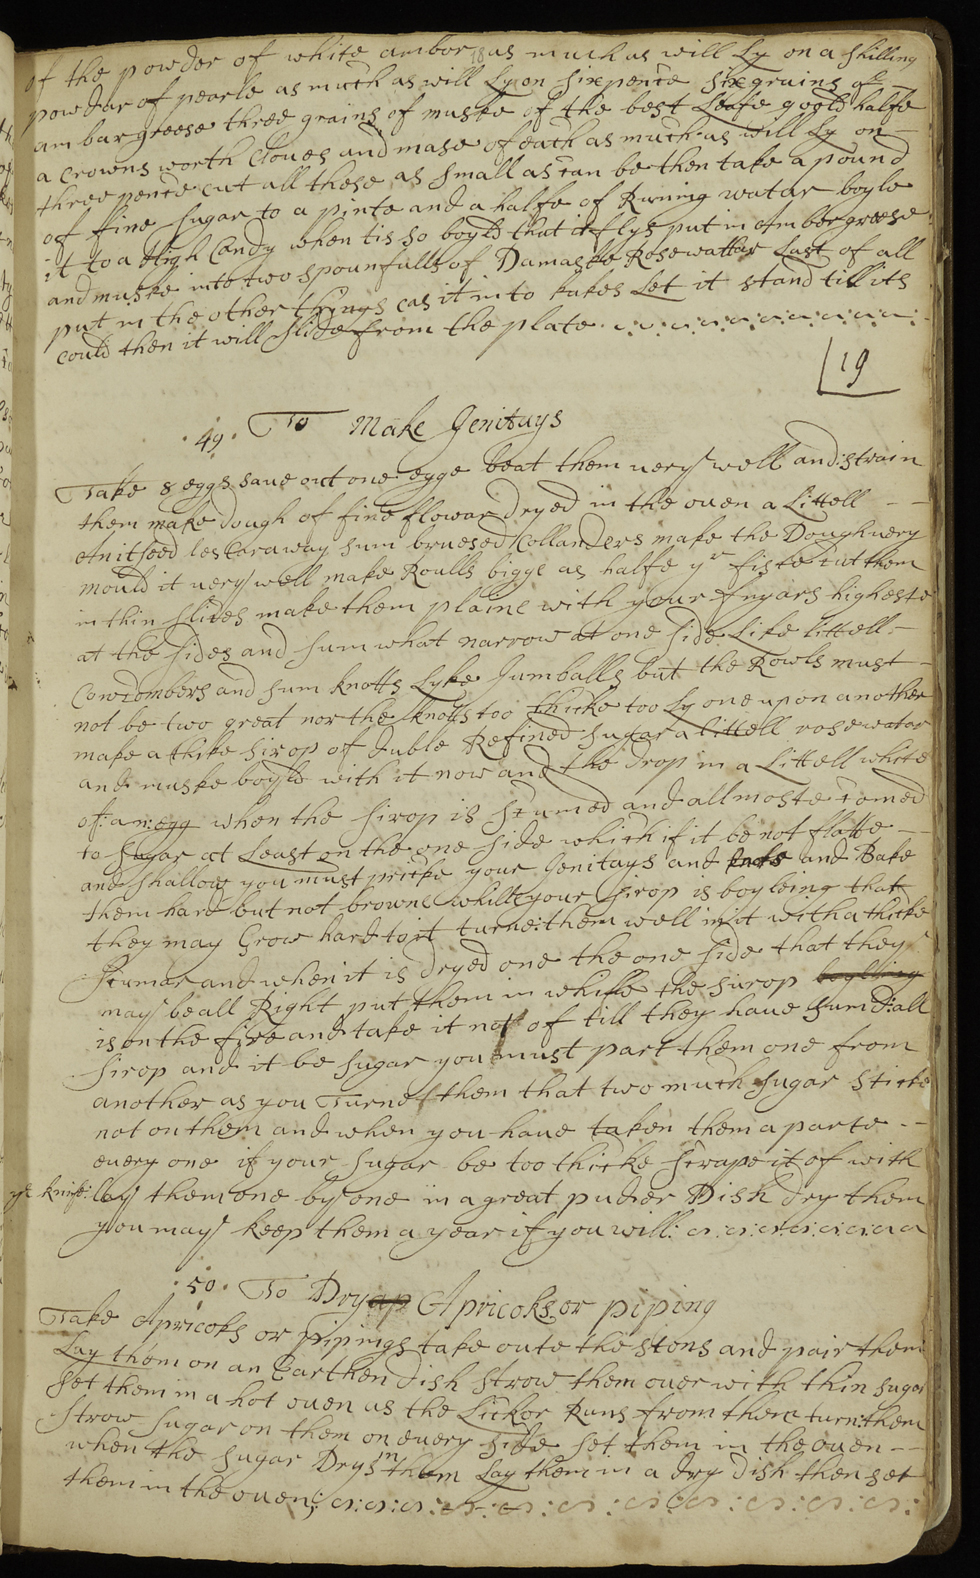 of the powder of white ambor as much as will Ly on a shilling
powdar of pearle as much as will Ly on sixpence six grains of
ambargreese three grains of muske of the best Leafe goold halfe
a crowns worth Cloues and mase of each as much as will Ly on
three pence cut all these as small as can be then take a pound
of fine sugar to a pinte and a halfe of Runing watar boyle
it to a High Candy when tis so boyld that it flys put in ambergreese
and muske into two spounfulls of Damaske Rosewattar Last of all
put in the other things cas it into kakes Let it stand till its
could then it will slide from the plate
19
49 To Make Jenitays
Take 8 eggs saue out one egge beat them uery well and strain
them make dough of fine flowar dryed in the ouen a Littell
Anitseed les Caraway sum bruesed Collanders make the Dough uery
mould it uery well make Roulls bigge as halfe yr fiste cut them
in thin slices make them plaine with your fingars highеste
at the sides and sumwhat narrow at one side Like littell
Cowcombers and sum knotts Lyke Jumballs but the Rowls must
not be two great nor the knotts too thicke too Ly one upon another
make a thike sirop of duble Refined sugar a littell rosewatar
and muske boyld with it now and the drop in a Littell white
of an egg when the sirop is scumed and allmoste comed
to sugar at Least on the one side which if it be not flatte
and shallow you must pricke your Jenitays and and Bake
them hard but not browne while your sirop is boyleing that
they may Grow hard to it turne them well in it with a thicke
scumar and when it is dryed one the one side that they
may be all Right put them in while the sirop boylling
is on the fire and take it not of till they haue sumd all
sirop and it be sugar you must part them one from
another as you Turne them that two much sugar sticke
not on them and when you haue taken them a parte
euery one if your sugar be too thicke scrape it of with
ye knife lay them one by one in a great pudter Dish dry them
you may keep them a year if you will
50 To Dry ap Apricoks or piping
Take Apricoks or pipings take oute the stons and pair them
Lay them on an Earthen dish strow them ouer with thin sugar
set them in a hot ouen as the Lickor Runs from them turn them
strow sugar on them on euery side set them in the ouen
when the sugar Drys in them Lay them in a dry dish then set
them in the ouen